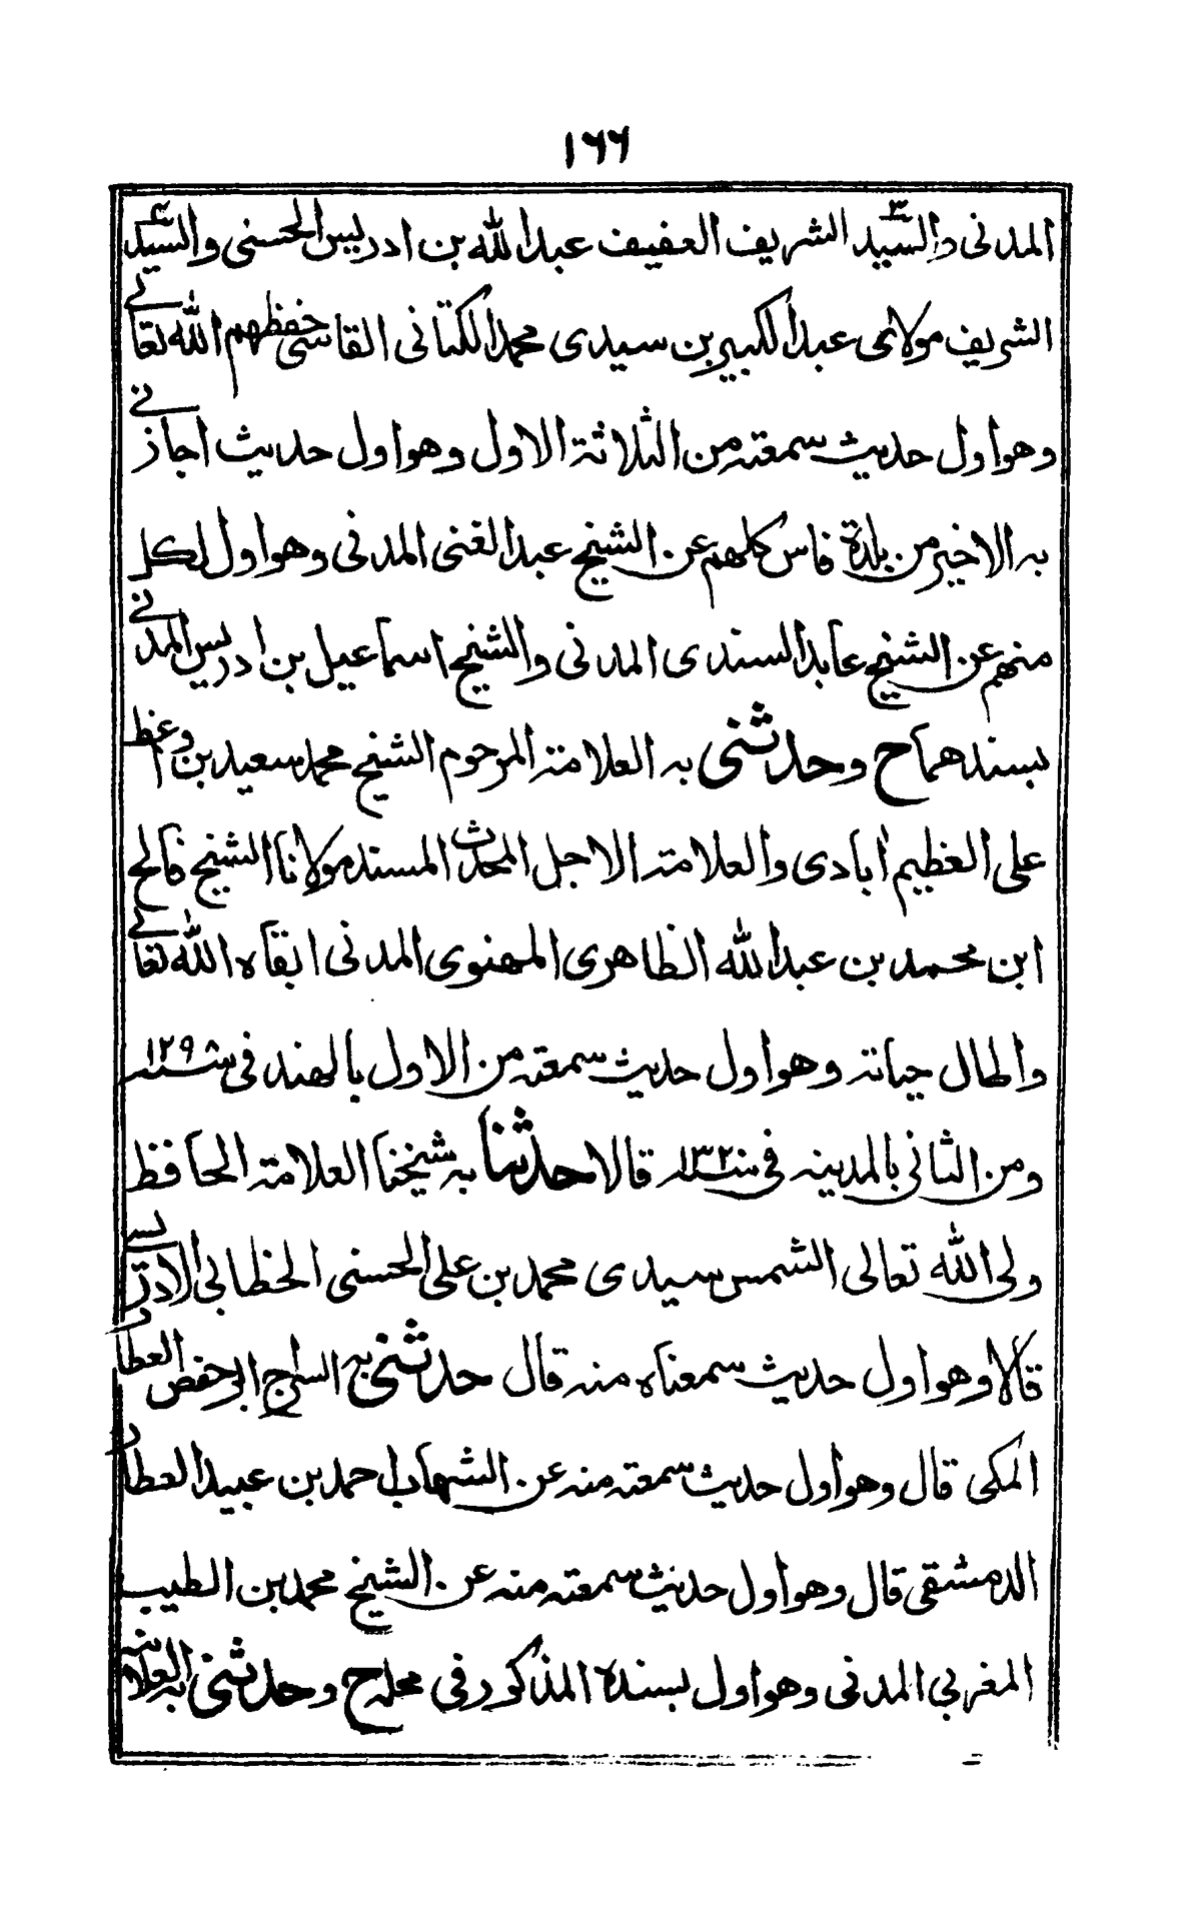 ١٦٦
المدنى والسيد٣ الشريف العفيف عبدالله بن ادريس الحسنى والسيد٤
الشريف مولاى عبدالكبير بن سيدى محمد الكتانى الفاسى حفظهم الله تعالى
وهو اول حديث سمعته من الثلاثة الاول وهو اول حديث اجازنى
به الاخير من بلدة فاس كلهم عن الشيخ عبدالغنى المدنى وهو اول لكل
منهم عن الشيخ عابد السندى المدنى والشيخ اسماعيل بن ادريس المدنى
بسندهما ح وحدثنى به العلامة المرحوم الشيخ محمد سعيد بن واعظ
على العظيم ابادى والعلامة الاجل المحدث المسند مولانا الشيخ فالح
ابن محمد بن عبدالله الظاهرى المهنوى المدنى ابقاه الله تعالى
واطال حياته وهو اول حديث سمعته من الاول بالهند فى سنة ١٢٩٨
ومن الثانى بالمدينه فى سنة ١٣٢٠ قالا حدثنا به شيخنا العلامة الحافظ
ولى الله تعالى الشمس سيدى محمد بن على الحسنى الخطابى الادريسى
قالا وهو اول حديث سمعناه منه قال حدثنى به السراج ابو حفص العطار
المكى قال وهو اول حديث سمعته منه عن الشهاب احمد بن عبيد العطار
الدمشقى قال وهو اول حديث سمعته منه عن الشيخ محمد بن الطيب
المغربي المدنى وهو اول بسنده المذكور فى محله ح وحدثنى به العلامة